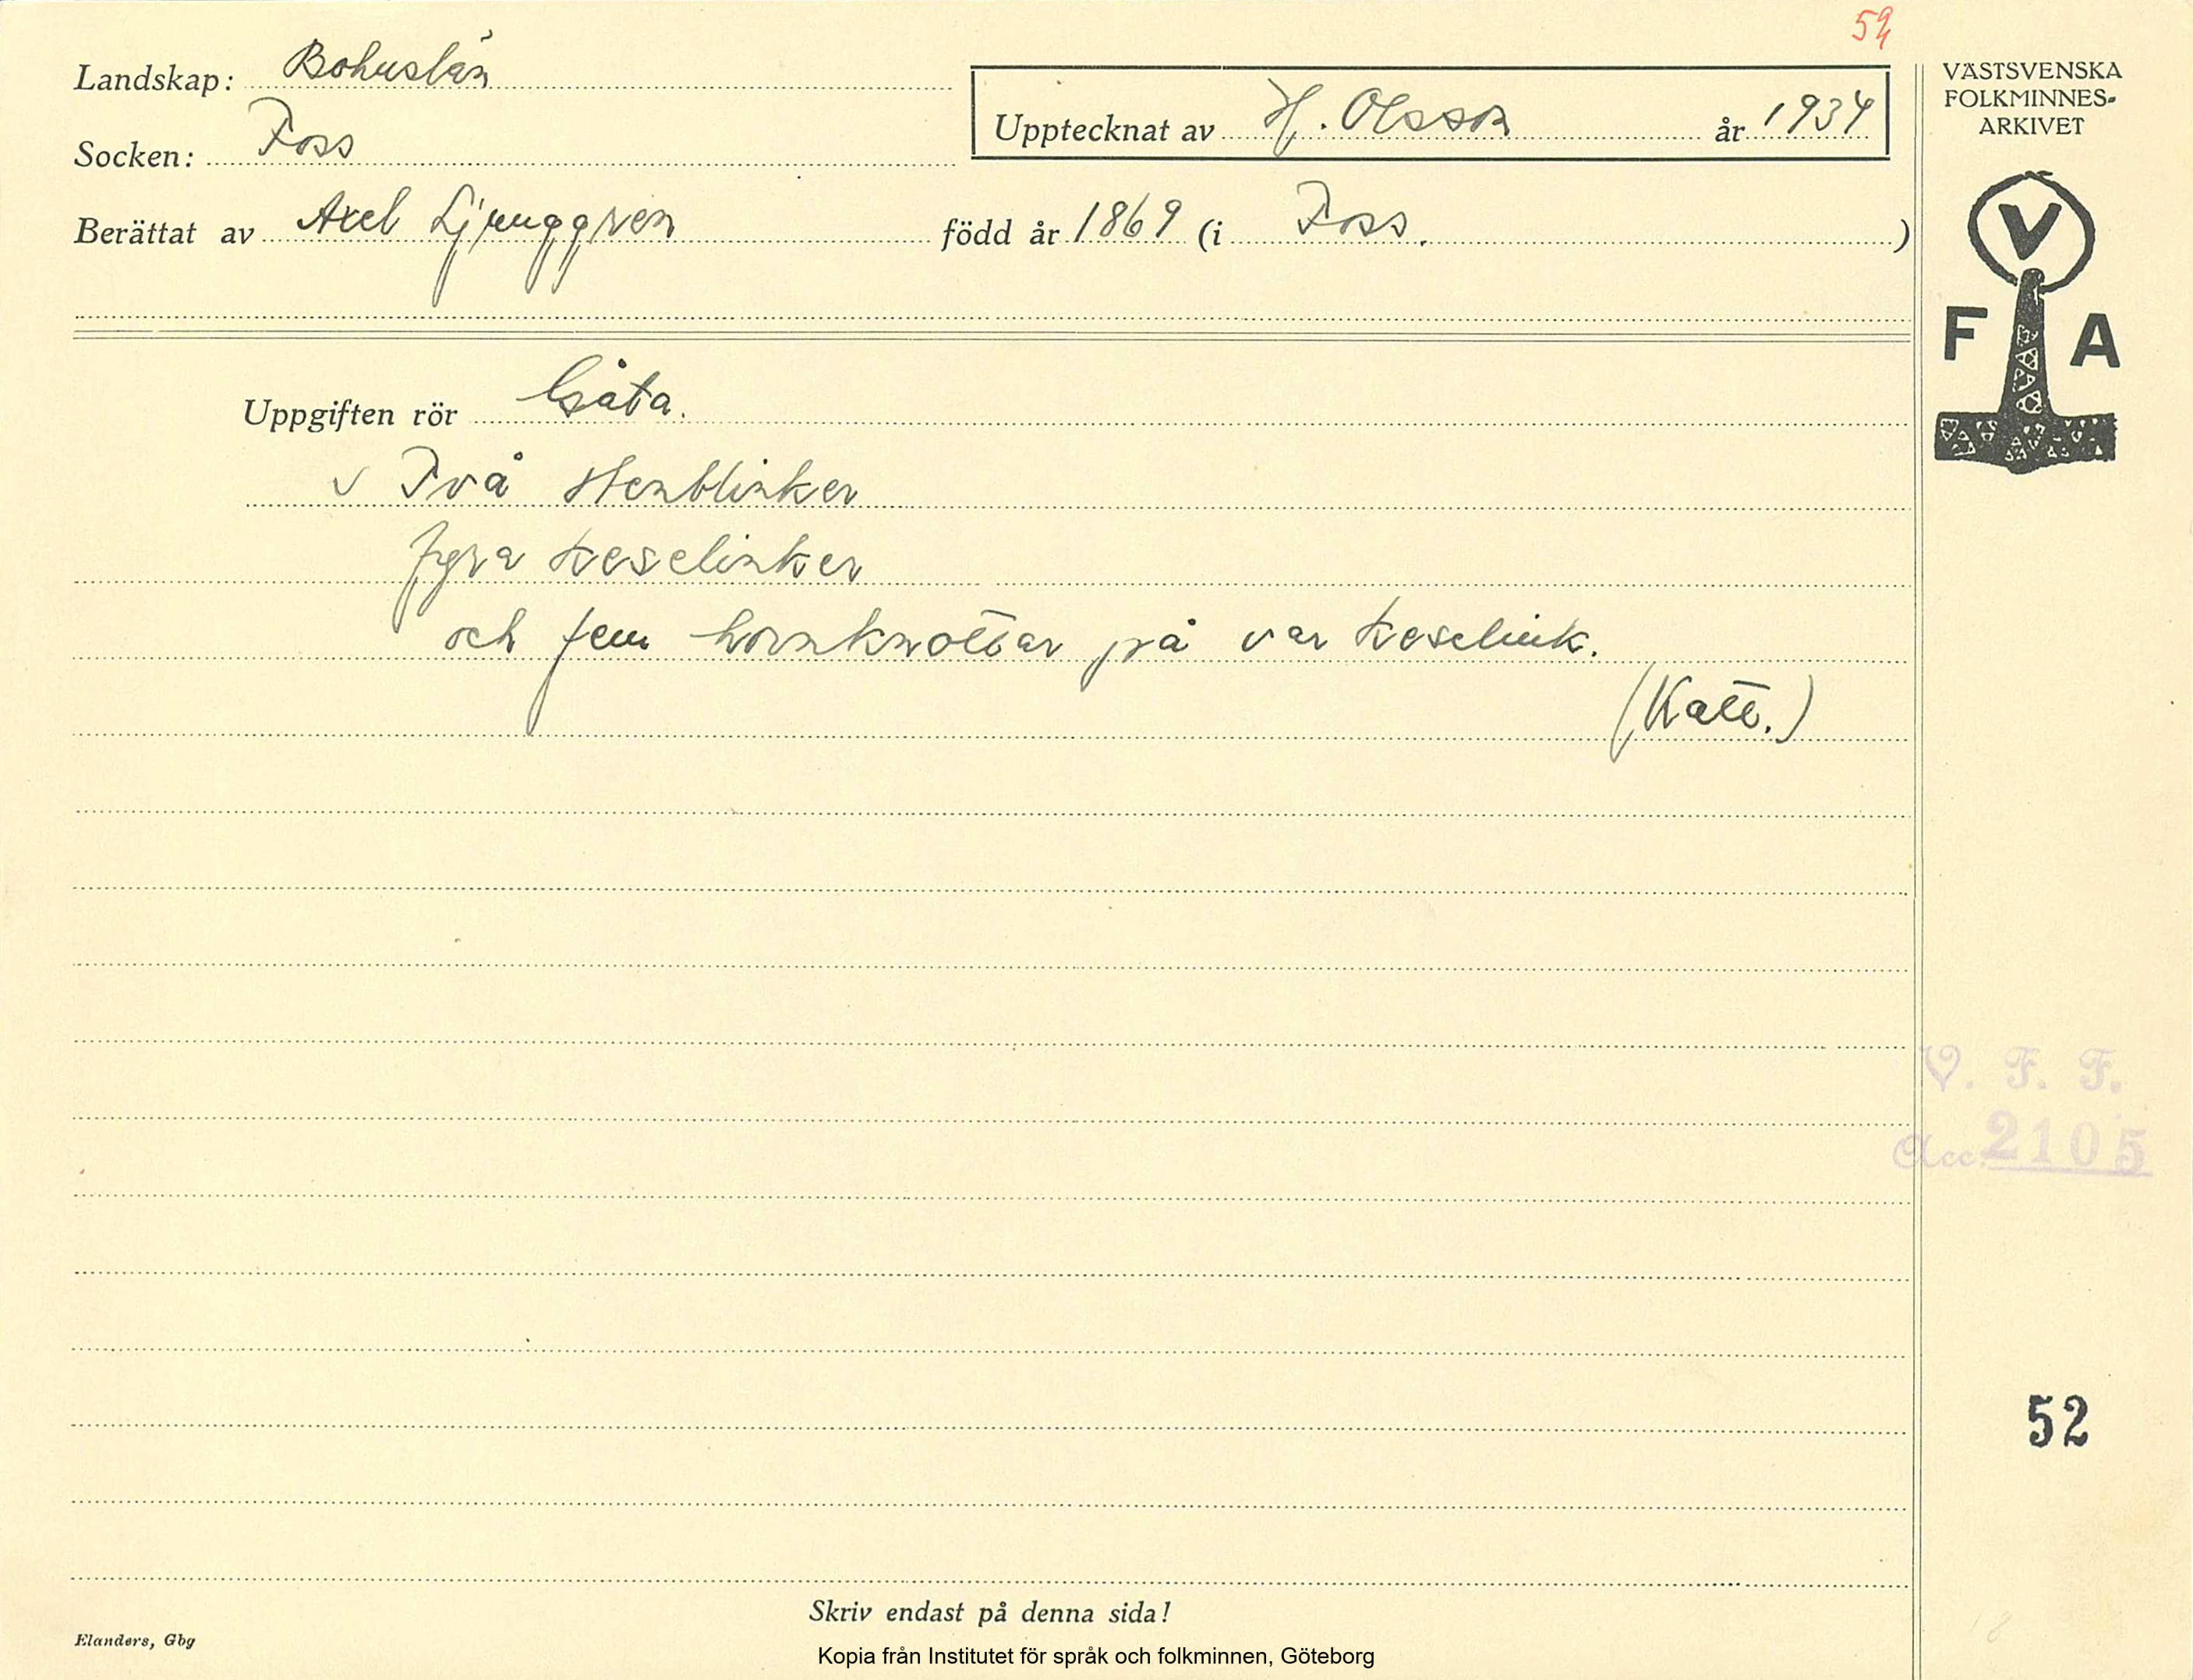 54
Landskap: Bohuslän
Socken: Foss
Upptecknat av H. Olsson år 1934
Berättat av Axel Ljunggren född år 1869 (i Foss. )
VÄSTSVENSKA
FOLKMINNES-
ARKIVET
V
F A
Uppgiften rör Gåta.
√ Två stenblinker
fyra keselinker
och fem hornknottar på var keselink.
(Katt.)
V. F. F.
Acc. 2105
52
Skriv endast på denna sida!
Elanders, Gbg
Kopia från Institutet för språk och folkminnen, Göteborg